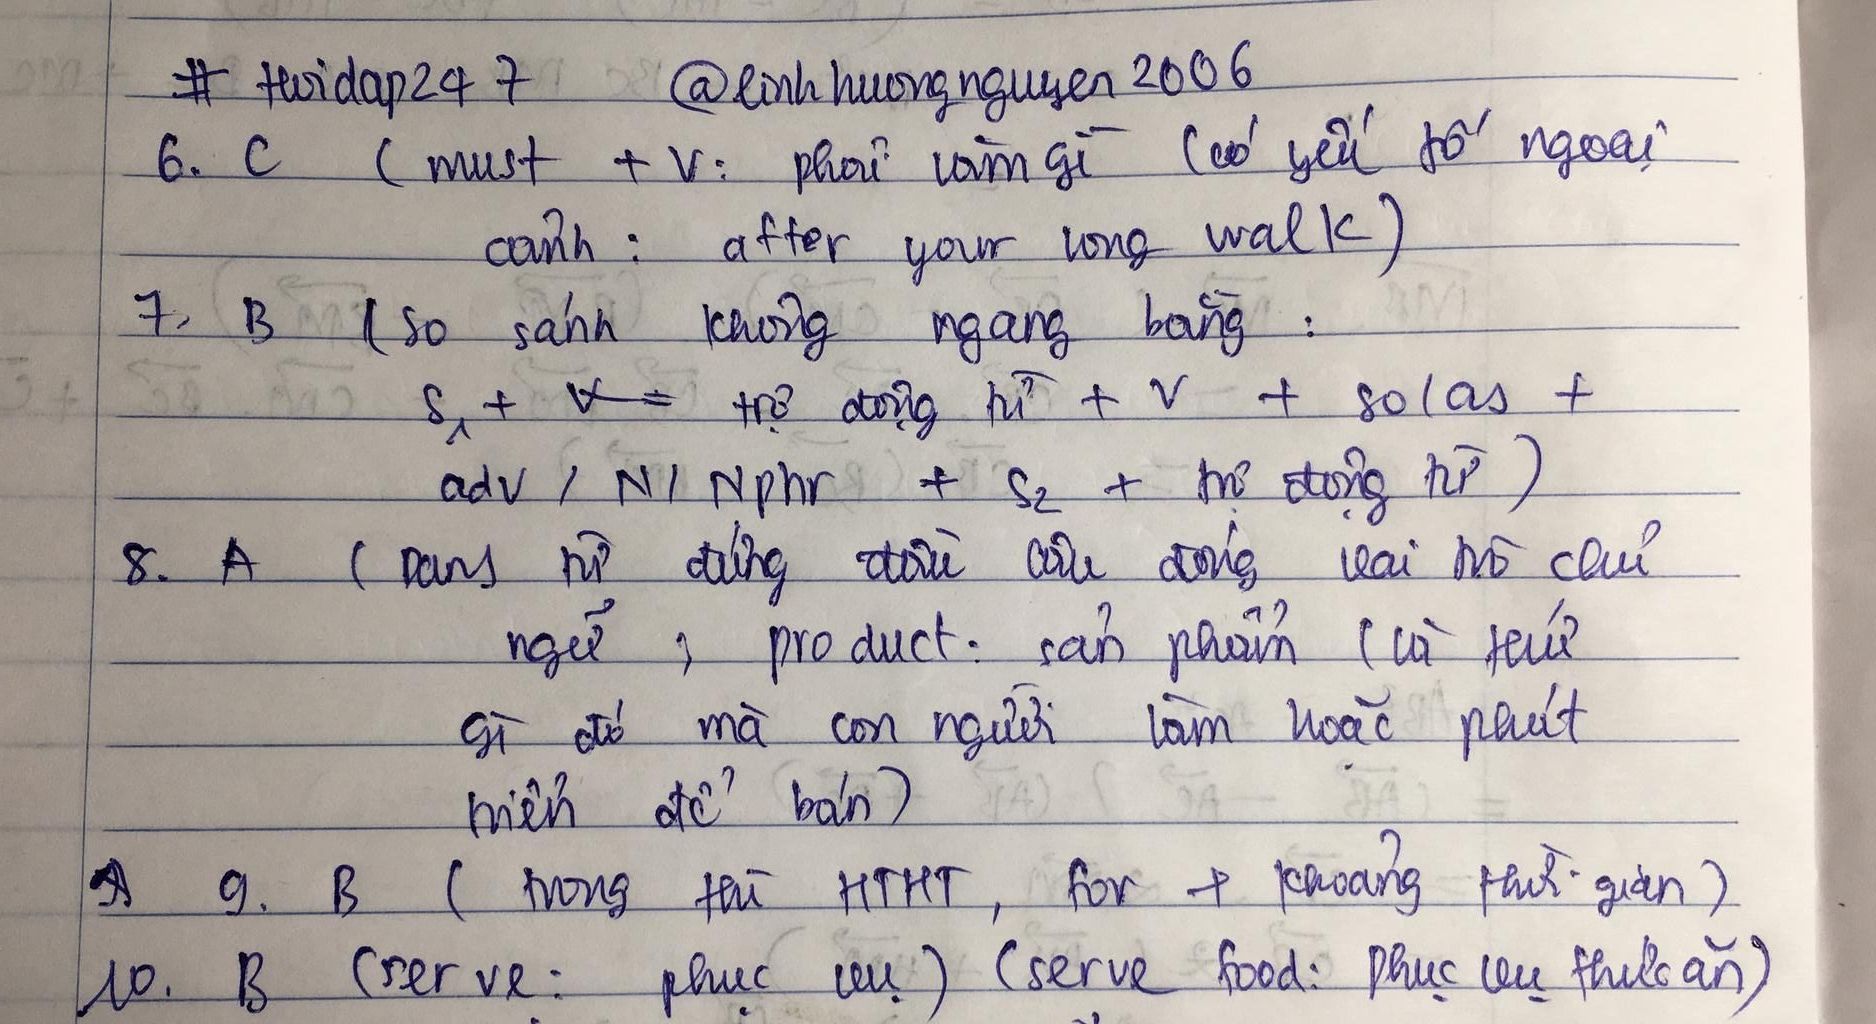 # hoidap247 @linhhuongnguyen2006
6. C ( must + V: phải làm gì (có yếu tố ngoại
cảnh : after your long walk)
7, B (so sánh không ngang bằng :
S1 + trợ động từ + V + so/as +
adv / N / Nphr + S2 + trợ động từ )
8. A ( Danh từ đứng đầu câu đóng vai trò chủ
ngữ ; product: sản phẩm ( là thứ
gì đó mà con người làm hoặc phát
triển để bán)
9. B ( trong thì HTHT, for + khoảng thời gian)
10. B (serve: phục vụ) (serve food: phục vụ thức ăn)